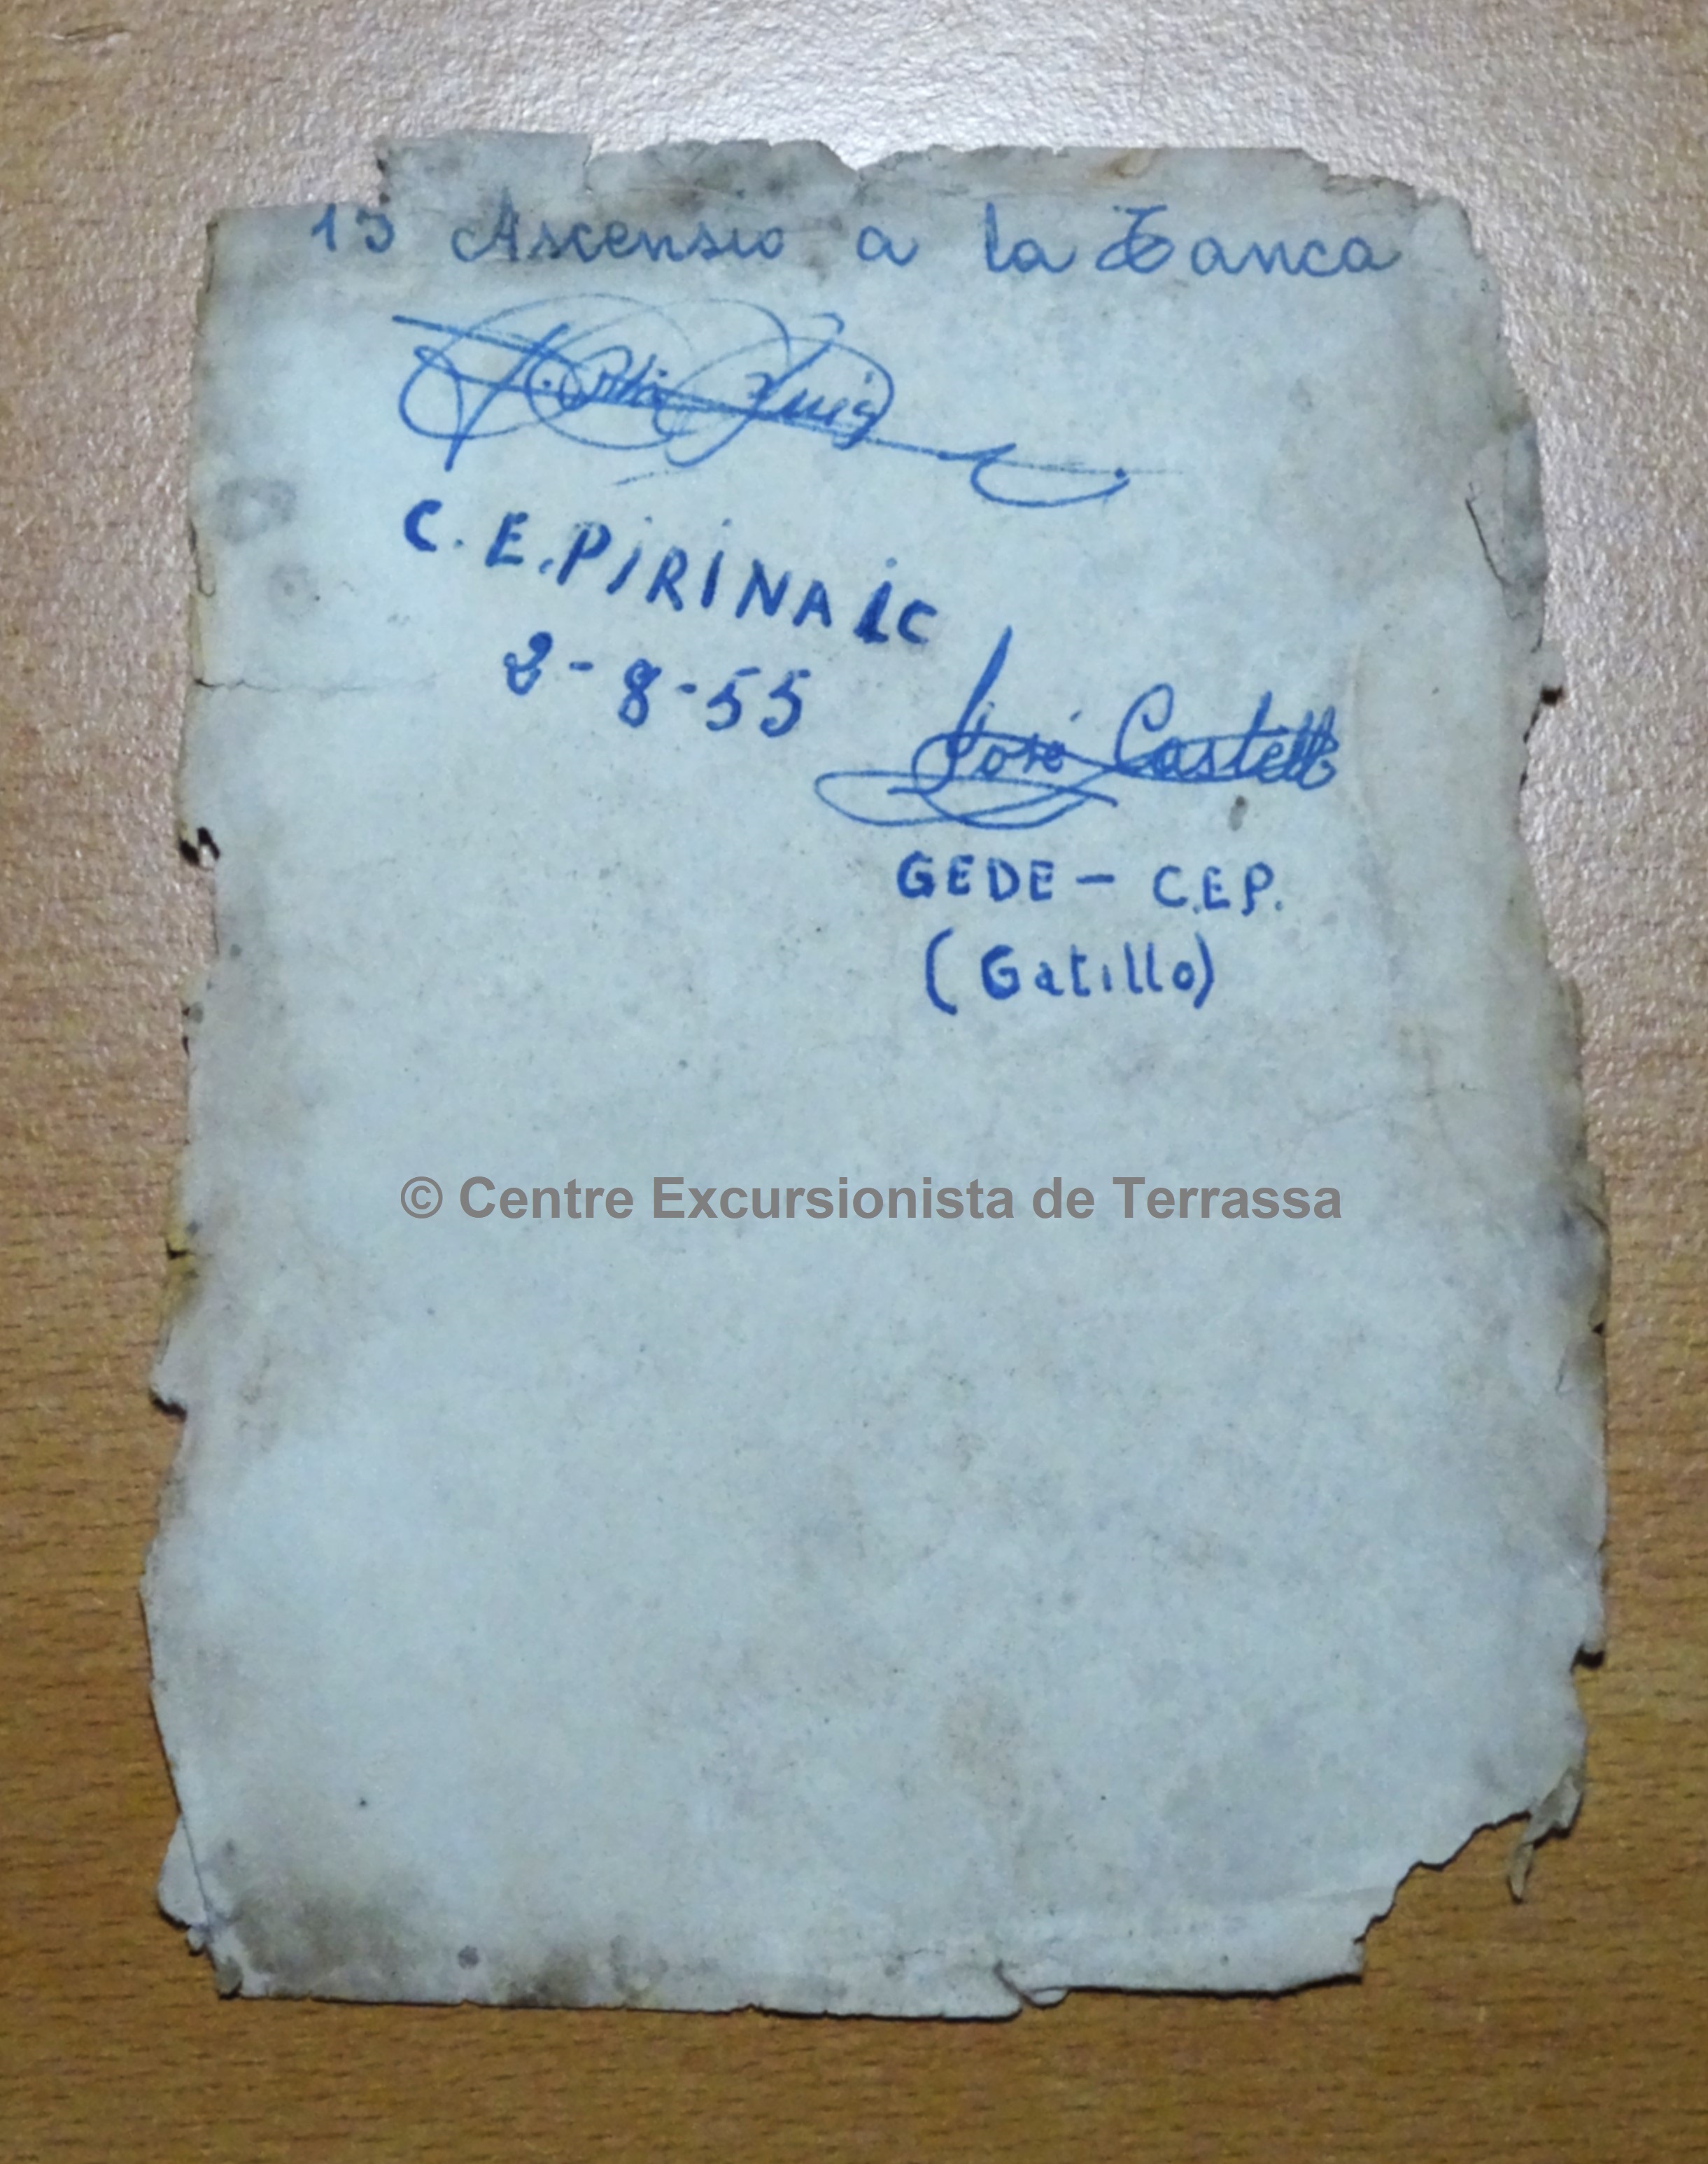 13 Ascensio a la Tanca
Puig
C. E. PIRINAIC
2-8-55
José Castells
GEDE - C.E.P.
(Gatillo)
© Centre Excursionista de Terrassa